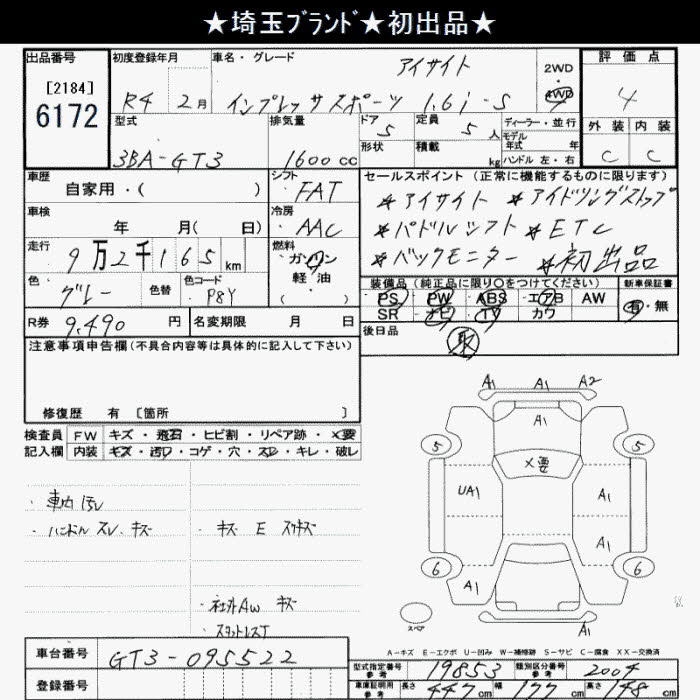 ★埼玉ﾌﾞﾗﾝﾄﾞ★初出品★
出品番号
[2184]
6172
初度登録年月
R4 2月
車名・グレード
アイサイト
インプレッサスポーツ 1.6i-S
2WD
4WD
評価点
4
型式
3BA-GT3
排気量
1600cc
ドア 5
定員 5人
形状
積載 kg
ディーラー・並行
モデル年式 年
ハンドル 左・右
外装 内装
C C
車歴
自家用・( )
シフト
FAT
車検
年 月( 日)
冷房
AAC
走行
9万2千165km
燃料
ガソリン
軽油
( )
色
グレー
色替
色コード
P8Y
R券 9,490 円
名変期限 月 日
セールスポイント (正常に機能するものに限ります)
★アイサイト ★アイドリングストップ
★パドルシフト ★ETC
★バックモニター ★初出品
装備品(純正品に限り〇をつけてください)
PS PW ABS エアB AW
SR ナビ TV カワ
新車保証書
有・無
後日品
取
注意事項申告欄(不具合内容等は具体的に記入して下さい)
修復歴 有 〔箇所 〕
検査員 FW キズ・飛石・ヒビ割・リペア跡・×要
記入欄 内装 キズ・汚れ・コゲ・穴・スレ・キレ・破レ
・車内汚レ
・ハンドル スレ、キズ
・キズ E スリキズ
・社外AW キズ
・スタットレスT
A1 A1 A2
A1
5 5
×要
UA1 A1
A1
6 6
A1
A1
スペア
A-キズ E-エクボ U-凹み W-補修跡 S-サビ C-腐食 XX-交換済
車台番号 GT3-095522
登録番号
型式指定番号 参考 19853
類別区分番号 参考 2004
車庫証明用 参考 長さ 447cm 幅 177cm 高さ 148cm